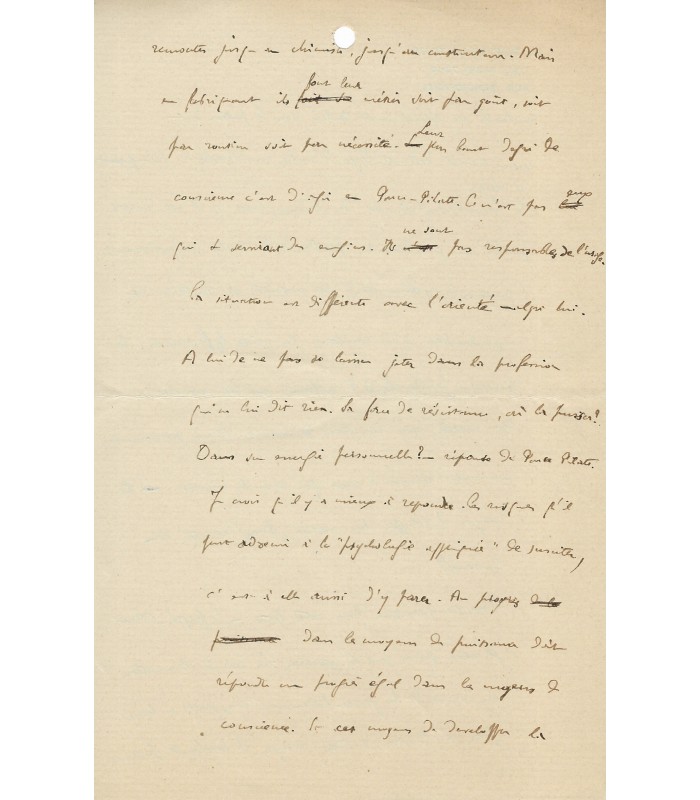 remontes jusqu'au chimiste, jusqu'au constructeur. Mais
en fabriquant ils font leur métier soit par goût, soit
par routine soit par nécessité. Leur plus haut degré de
conscience c'est d'agir en Ponce-Pilate. Ce n'est pas eux
qui se servent des engins. Ils ne sont pas responsables de l'usage.
La situation est différente avec l'orienté malgré lui.
A lui de ne pas se laisser jeter dans la profession
qui ne lui dit rien. Sa force de résistance, où la puiser?
Dans son énergie personnelle? — réponse de Ponce Pilate.
Je crois qu'il y a mieux à répondre. Les risques qu'il
peut advenir à la "psychologie appliquée" de susciter,
c'est à elle aussi d'y parer. Au progrès
dans les moyens de puissance doit
répondre un progrès égal dans les moyens de
conscience. Et ces moyens de développer la